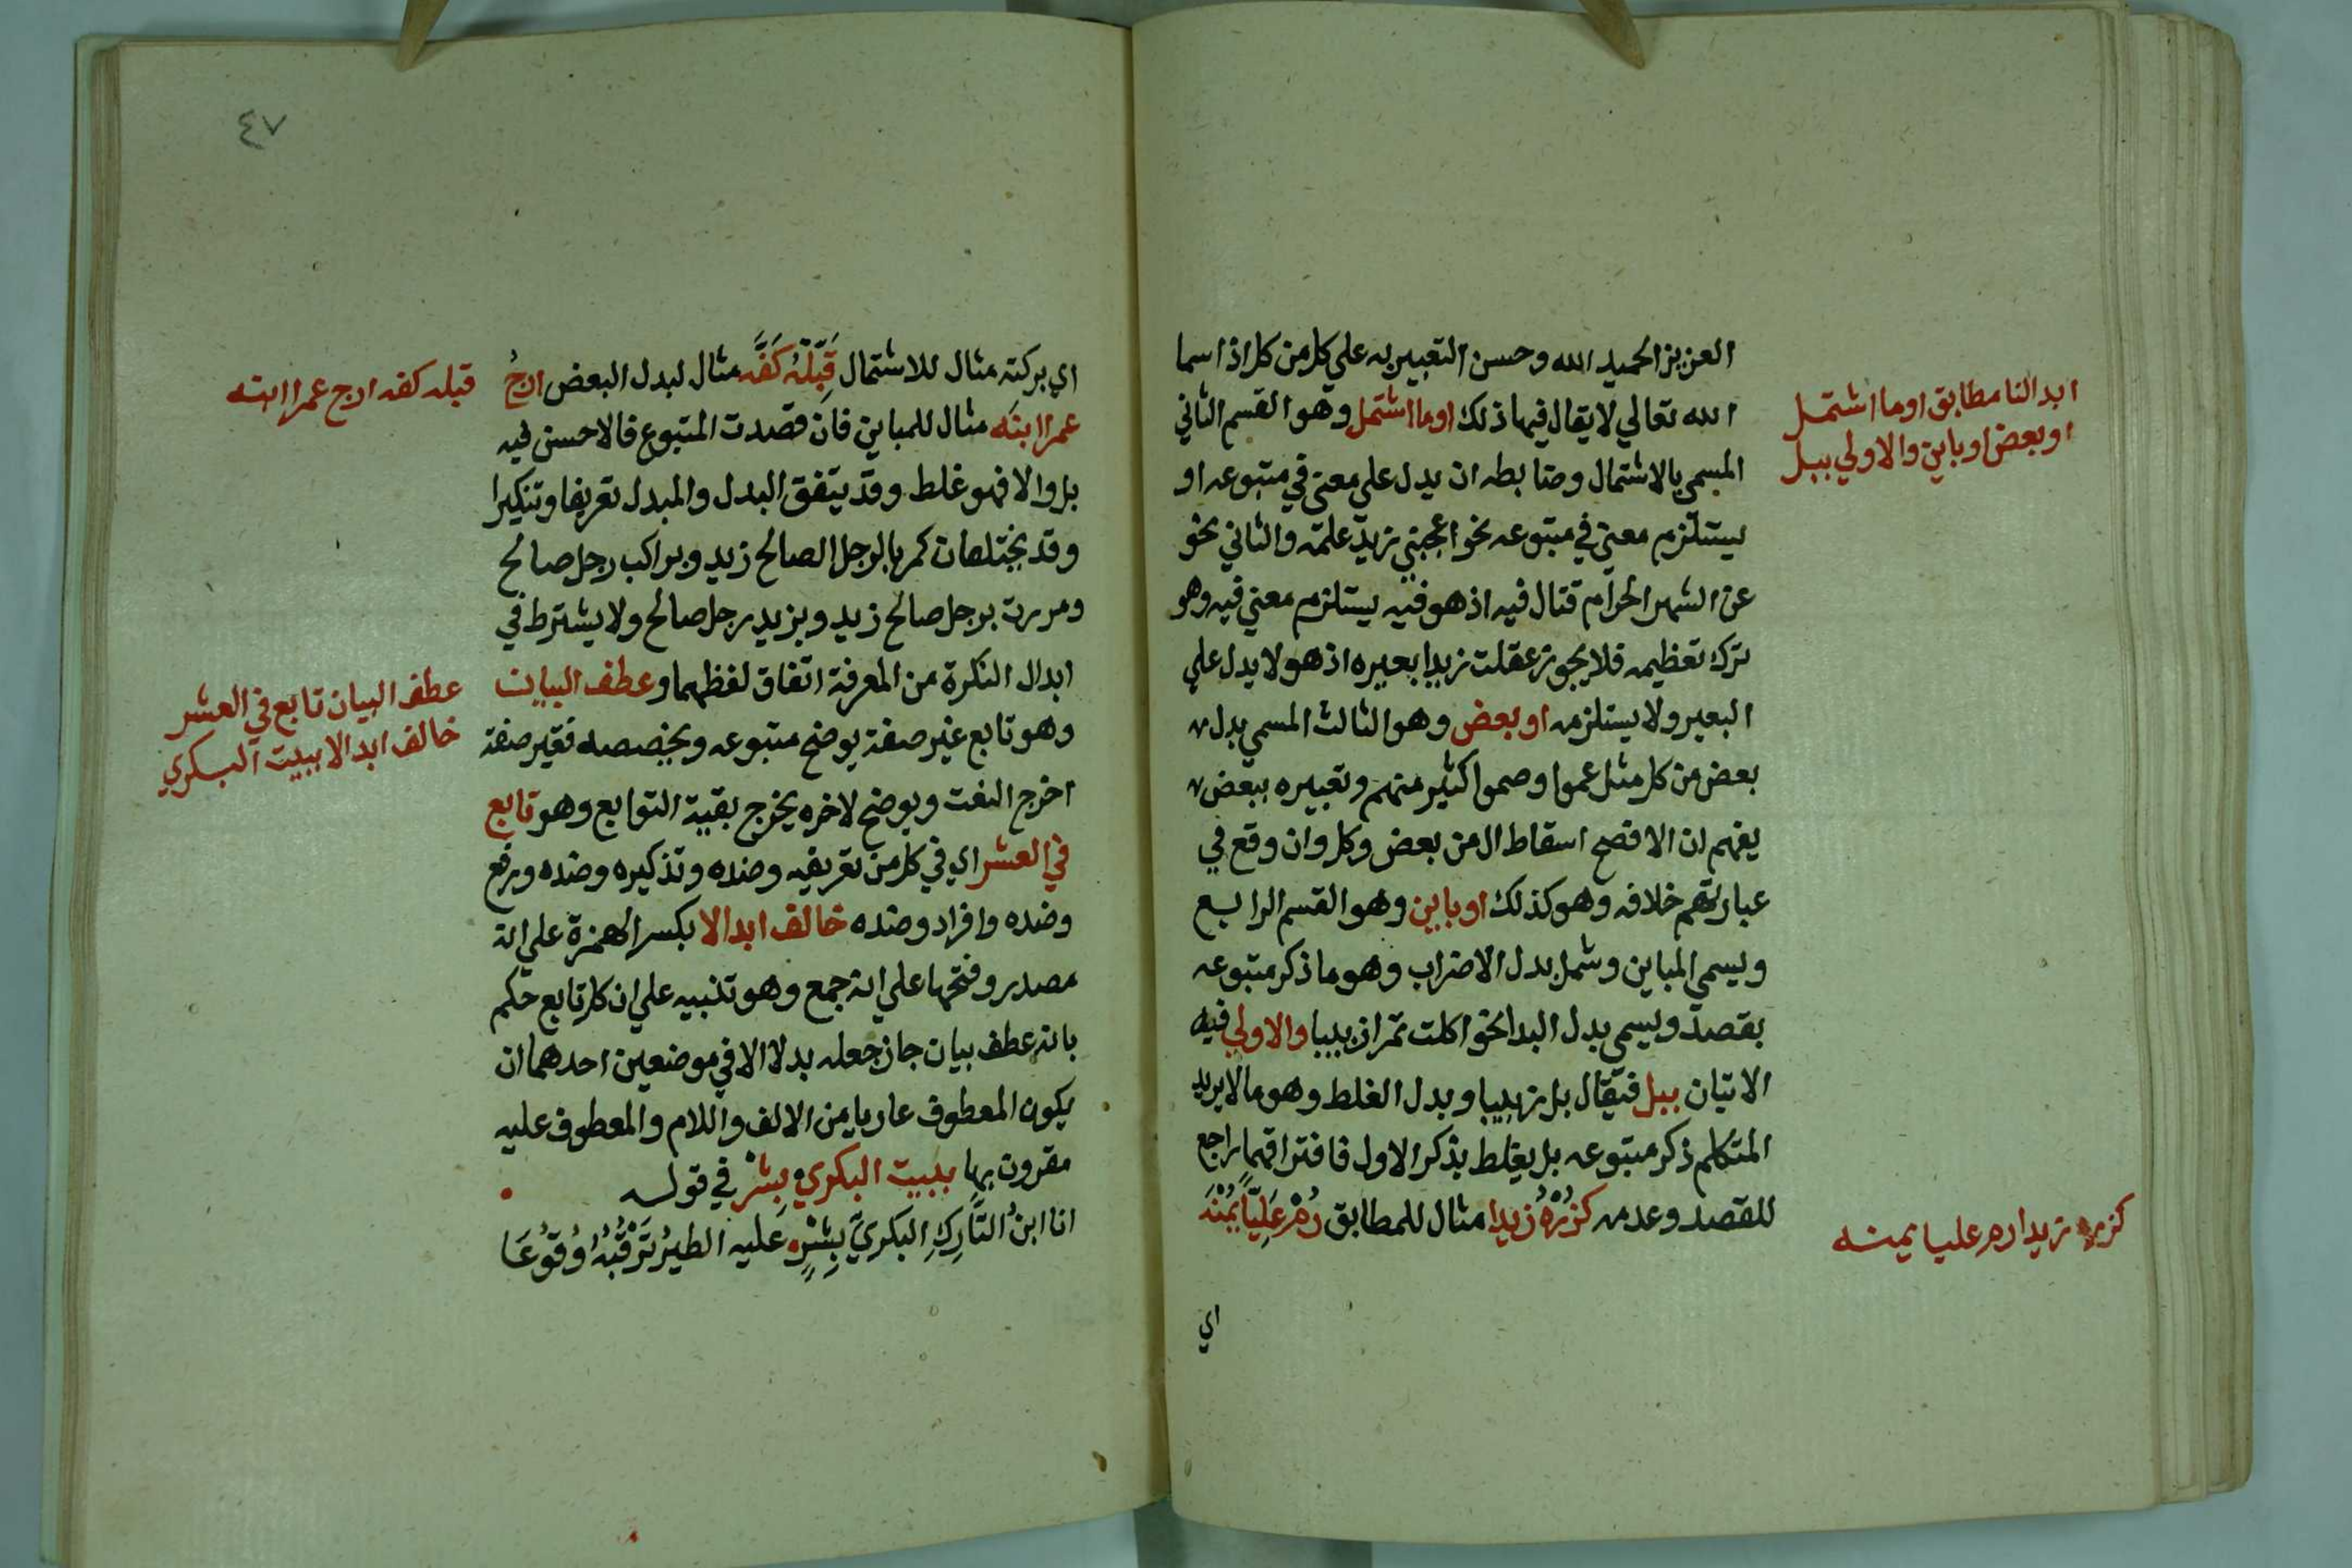 العزيز الحميد الله وحسن التعبير به علي كل من كل اذ اسما
الله تعالي لا يقال فيها ذلك او ما اشتمل وهو القسم الثاني
المسمي بالاشتمال وضابطه ان يدل علي معني في متبوعه او
يستلزم معني في متبوعه نحو اعجبني زيد علمه والثاني نحو
عن الشهر الحرام قتال فيه اذ هو فيه يستلزم معني فيه وهو
ترك تعظيمه فلا يجوز عقلت زيدا بعيره اذ هو لا يدل علي
البعير ولا يستلزمه او بعض وهو الثالث المسمي بدل
بعض من كل مثل عموا وصموا كثير منهم وتعبيره ببعض
يفهم ان الافصح اسقاط ال من بعض وكل وان وقع في
عبارتهم خلافه وهو كذلك او باين وهو القسم الرابع
ويسمي المباين وشمل بدل الاضراب وهو ما ذكر متبوعه
بقصد ويسمي بدل البدا نحو اكلت تمرا زبيبا والاولي فيه
الاتيان ببل فيقال بل زبيبا وبدل الغلط وهو ما لا يريد
المتكلم ذكر متبوعه بل يغلط بذكر الاول فافتراقهما راجع
للقصد وعدمه كزُرْهُ زيدا مثال للمطابق رُمْ عَلِيًّا يُمْنَهُ
اي
ابدالنا مطابق او ما اشتمل
او بعض او باين والاولي ببل
كزره زيدا رم عليا يمنه
٤٧
اي بركته مثال للاشتمال قَبِّلْهُ كَفَّه مثال لبدل البعض ارجُ
عمرا ابنَه مثال للمباين فان قصدت المتبوع فالاحسن فيه
بل والا فهو غلط وقد يتفق البدل والمبدل تعريفا وتنكيرا
وقد يختلفان كمر بالرجل الصالح زيد وبراكب رجل صالح
ومررت برجل صالح زيد وبزيد رجل صالح ولا يشترط في
ابدال النكرة من المعرفة اتفاق لفظهما وعطف البيان
وهو تابع غير صفة يوضح متبوعه ويخصصه فغير صفة
اخرج النعت ويوضح لاخره يخرج بقية التوابع وهو تابع
في العشر اي في كل من تعريفه وضده وتذكيره وضده ورفع
وضده وافراد وضده خالف ابدالا بكسر الهمزة علي انه
مصدر وفتحها علي انه جمع وهو تنبيه علي ان كل تابع حكم
بانه عطف بيان جاز جعله بدلا الا في موضعين احدهما ان
يكون المعطوف عاريا من الالف واللام والمعطوف عليه
مقرون بها ببيت البكري بِشْر في قوله
انا ابنُ التَّارِكِ البكريِّ بِشْرٍ عَليه الطيرُ تَرْقُبُهُ وُقُوْعَا
قبله كفه ارج عمرا ابنه
عطف البيان تابع في العشر
خالف ابدالا ببيت البكري